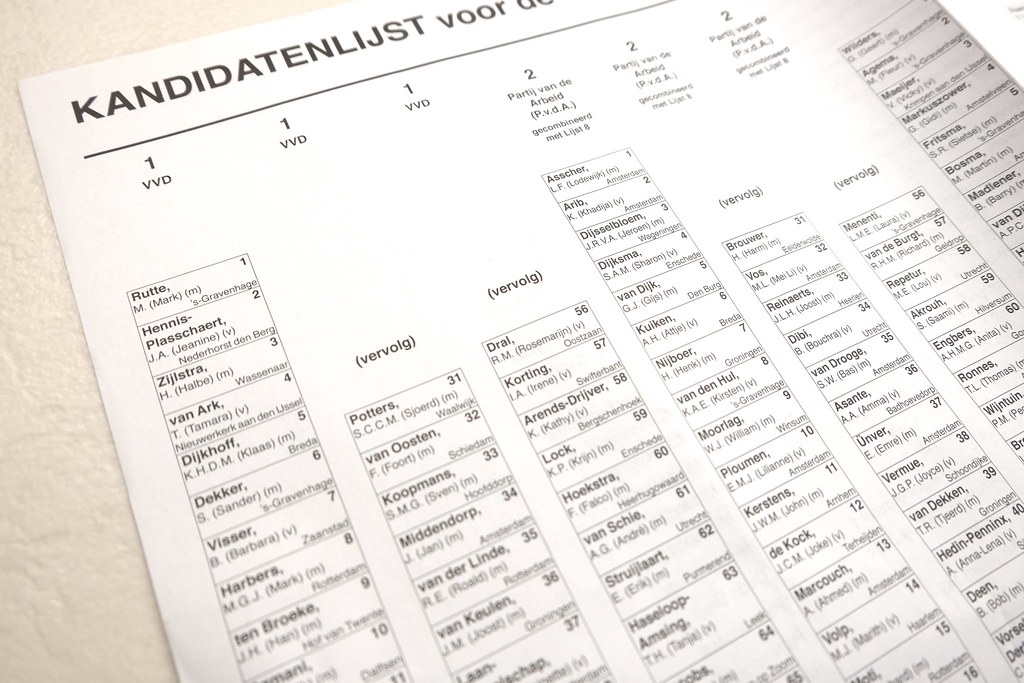 KANDIDATENLIJST voor de
1
VVD
1
VVD
1
VVD
2
Partij van de
Arbeid
(P.v.d.A.)
gecombineerd
met Lijst 8
2
Partij van de
Arbeid
(P.v.d.A.)
gecombineerd
met Lijst 8
2
Partij van de
Arbeid
(P.v.d.A.)
gecombineerd
met Lijst 8
1
Rutte,
M. (Mark) (m)
's-Gravenhage
2
Hennis-
Plasschaert,
J.A. (Jeanine) (v)
Nederhorst den Berg
3
Zijlstra,
H. (Halbe) (m)
Wassenaar
4
van Ark,
T. (Tamara) (v)
Nieuwerkerk aan den IJssel
5
Dijkhoff,
K.H.D.M. (Klaas) (m)
Breda
6
Dekker,
S. (Sander) (m)
's-Gravenhage
7
Visser,
B. (Barbara) (v)
Zaanstad
8
Harbers,
M.G.J. (Mark) (m)
Rotterdam
9
ten Broeke,
J.H. (Han) (m)
Hof van Twente
10
(vervolg)
31
Potters,
S.C.C.M. (Sjoerd) (m)
Waalwijk
32
van Oosten,
F. (Foort) (m)
Schiedam
33
Koopmans,
S.M.G. (Sven) (m)
Hoofddorp
34
Middendorp,
J. (Jan) (m)
Amsterdam
35
van der Linde,
R.E. (Roald) (m)
Rotterdam
36
van Keulen,
J.M. (Joost) (m)
Groningen
37
(vervolg)
56
Dral,
R.M. (Rosemarijn) (v)
Oostzaan
57
Korting,
I.A. (Irene) (v)
Swifterbant
58
Arends-Drijver,
K. (Kathy) (v)
Bergschenhoek
59
Lock,
K.P. (Krijn) (m)
Enschede
60
Hoekstra,
F. (Falco) (m)
Heerhugowaard
61
van Schie,
A.G. (André) (m)
Utrecht
62
Struijlaart,
E. (Erik) (m)
Purmerend
63
Haseloop-
Amsing,
T.H. (Tanja) (v)
Leek
64
1
Asscher,
L.F. (Lodewijk) (m)
Amsterdam
2
Arib,
K. (Khadija) (v)
Amsterdam
3
Dijsselbloem,
J.R.V.A. (Jeroen) (m)
Wageningen
4
Dijksma,
S.A.M. (Sharon) (v)
Enschede
5
van Dijk,
G.J. (Gijs) (m)
Den Burg
6
Kuiken,
A.H. (Attje) (v)
Breda
7
Nijboer,
H. (Henk) (m)
Groningen
8
van den Hul,
K.A.E. (Kirsten) (v)
's-Gravenhage
9
Moorlag,
W.J. (William) (m)
Winsum
10
Ploumen,
E.M.J. (Lilianne) (v)
Amsterdam
11
Kerstens,
J.W.M. (John) (m)
Arnhem
12
de Kock,
J.C.M. (Joke) (v)
Terheijden
13
Marcouch,
A. (Ahmed) (m)
Amsterdam
14
Volp,
M.J. (Marith) (v)
Haarlem
15
(vervolg)
31
Brouwer,
H. (Harm) (m)
Eelderwolde
32
Vos,
M.L. (Mei Li) (v)
Amsterdam
33
Reinaerts,
J.L.H. (Joost) (m)
Heerlen
34
Dibi,
B. (Boudra) (v)
Utrecht
35
van Drooge,
S.W. (Bas) (m)
Amsterdam
36
Asante,
A.A. (Amma) (v)
Badhoevedorp
37
Ünver,
E. (Emre) (m)
Amsterdam
38
Vermue,
J.G.P. (Joyce) (v)
Schoondijke
39
van Dekken,
T.R. (Tjeerd) (m)
Groningen
40
Hedin-Penninx,
A. (Anna-Lena) (v)
Deen,
B. (Bob) (m)
(vervolg)
56
Menenti,
L.M.E. (Laura) (v)
's-Gravenhage
57
van de Burgt,
R.H.M. (Richard) (m)
Geldrop
58
Repetur,
M.E. (Lou) (v)
Utrecht
59
Akrouh,
S. (Saami) (m)
Hilversum
60
Engbers,
A.H.M.G. (Anita) (v)
Ronnes,
T.L. (Thomas) (m)
Wilders,
G. (Geert) (m)
's-Gravenhage
2
Agema,
M. (Fleur) (v)
's-Gravenhage
3
Maeijer,
V. (Vicky) (v)
Krimpen aan den IJssel
4
Markuszower,
G. (Gidi) (m)
Amstelveen
5
Fritsma,
S.R. (Sietse) (m)
's-Gravenhage
Bosma,
M. (Martin) (m)
Madlener,
B. (Barry) (m)